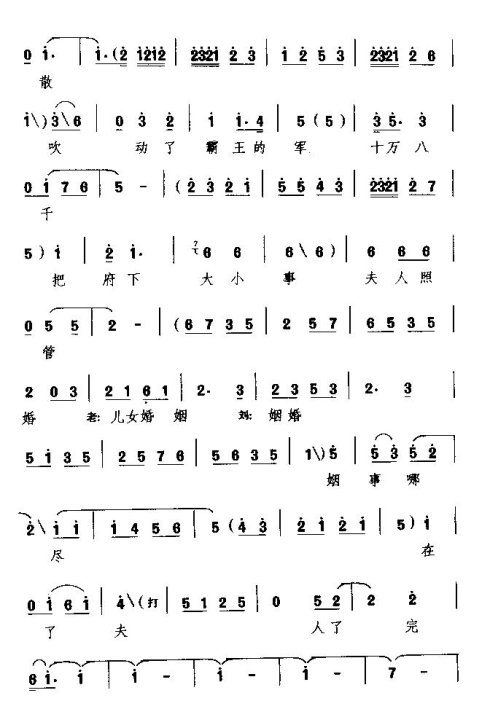 0 i·｜i·(2 1212｜2321 2 3｜1 2 5 3｜2321 2 6｜
散
i\) 3\6｜0 3 2｜i i·4｜5 (5)｜3 5·3｜
吹 动了 霸王的 军 十万八
0 i 7 6｜5 -｜(2 3 2 1｜5 5 4 3｜2321 2 7｜
千
5) i｜2 i·｜6 6｜6\6)｜6 6 6｜
把 府下 大小 事 夫人照
0 5 5｜2 -｜(6 7 3 5｜2 5 7｜6 5 3 5｜
管
2 0 3｜2 1 6 1｜2· 3｜2 3 5 3｜2· 3｜
婚 老:儿女婚 姻 刘:姻婚
5 1 3 5｜2 5 7 6｜5 6 3 5｜1\) 5｜5 3 5 2｜
姻 事哪
2\i i｜i 4 5 6｜5 (4 3｜2 1 2 1｜5) i｜
尽 在
0 i 6 i｜4\(打｜5 1 2 5｜0 5 2｜2 2｜
了 夫 人了 完
6 i·｜i -｜i -｜i -｜7 -｜